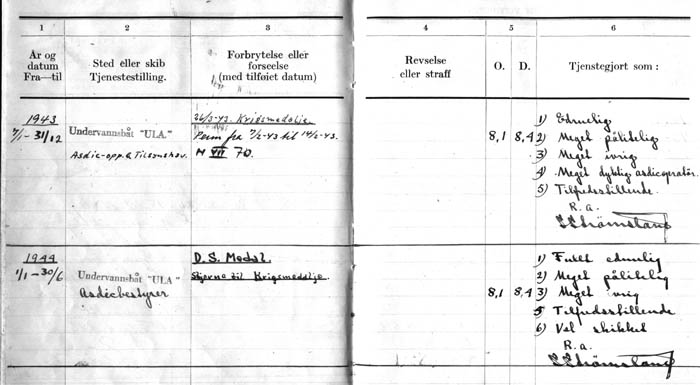 1
2
3
4
5
6
År og
datum
Fra—til
Sted eller skib
Tjenestestilling.
Forbrytelse eller
forseelse
(med tilføiet datum)
Revselse
eller straff
O.
D.
Tjenstegjort som :
1943
1/1 - 31/12
Undervannsbåt "ULA."
Asdic-opp. & Tilsynshav.
26/3-43. Krigsmedalje.
Perm fra 7/2-43 til 14/2-43.
VII 70.
8,1
8,4
1) Edruelig
2) Meget pålitelig
3) Meget ivrig
4) Meget dyktig asdicoperatør.
5) Tilfredsstillende.
R. a.
1944
1/1 - 30/6
Undervannsbåt "ULA"
Asdicbestyrer
D. S. Medal.
Stjerne til Krigsmedalje.
8,1
8,4
1) Fullt edruelig
2) Meget pålitelig
3) Meget ivrig
5 Tilfredsstillende
6) Vel skikket
R. a.